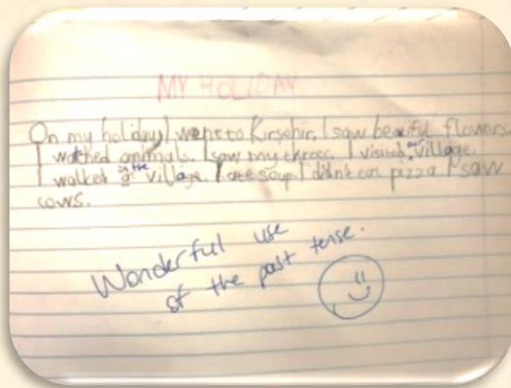 MY HOLIDAY
On my holiday I went to Kırşehir. I saw beaiful flowers.
I watched animals. I saw my I visited my village.
I walked in the village. I ate soup I didn't eat pizza I saw
cows.
Wonderful use
of the past tense.